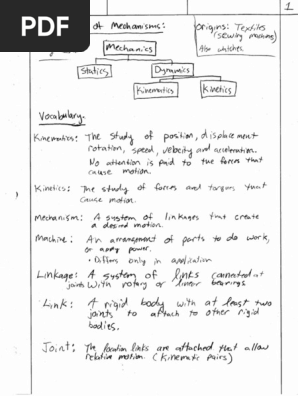 PDF
1
of Mechanisms:
Origins: Textiles
(sewing machine)
Also watches.
Mechanics
Statics
Dynamics
Kinematics
Kinetics
Vocabulary:
Kinematics: The study of position, displacement
rotation, speed, velocity and acceleration.
No attention is paid to the forces that
cause motion.
Kinetics: The study of forces and torques that
cause motion.
Mechanism: A system of linkages that create
a desired motion.
Machine: An arrangement of parts to do work,
or apply power.
• Differs only in application
Linkage: A system of links connected at
joints with rotary or linear bearings.
Link: A rigid body with at least two
joints to attach to other rigid
bodies.
Joint: The location links are attached that allow
relative motion. (Kinematic pairs)